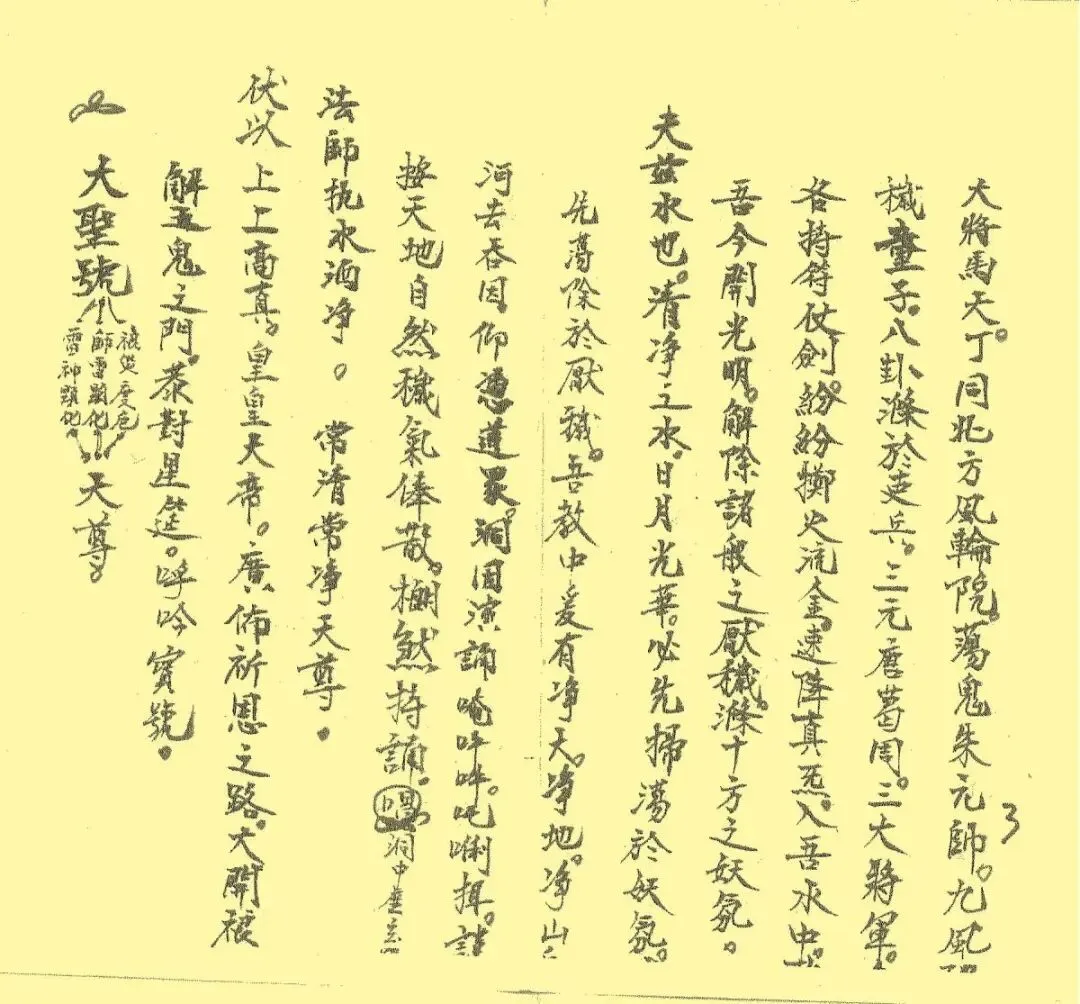 大將馬天丁。同北方風輪院。蕩鬼朱元帥。九鳳
穢童子。八卦滌於吏兵。三元唐葛周。三大將軍。
各持符仗劍。紛紛擲火流金。速降真炁。入吾水中。
吾今開光明。解除諸般之厭穢。滌十方之妖氛。
夫茲水也。清净之水。日月光華。必先掃蕩於妖氛。
先蕩除於厭穢。吾教中爰有净天。净地。净山
河去吞因仰憑道眾。洞回演誦唵吽吽。吒唎揮。
按天地自然穢氣俸散。棚然持誦。唱洞中虚
法師执水洒净。常清常净天尊。
伏以上上高真。皇皇大帝。廣佈祈恩之路。大開禳
解五鬼之門。恭對星筵。呼吟寶號。
大聖號禳災度厄師雷顕化雷神顕化天尊。
3